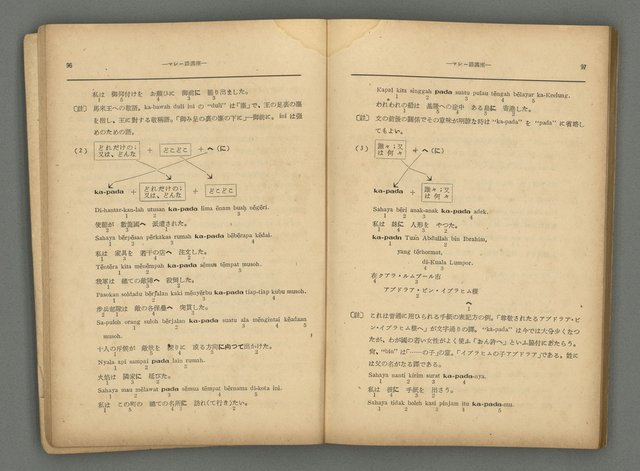 96
―マレー語講座―
私は 御何付けを お願ひに 御前に 罷り出ました。
〔註〕 馬來王への敬語。ka-bawah duli ini の "duli" は「塵」で、王の足裏の塵
を指し、王に對する敬稱語。「御み足の裏の塵の下に」―御前に。ini は强
めのための語。
(2) どれだけの; 又は、どんな + どこどこ + へ(に)
ka-pada + どれだけの; 又は、どんな + どこどこ
Di-hantar-kan-lah utusan ka-pada lima ĕnam buah nĕgĕri.
使節が 數箇國へ 派遣された。
Sahaya bĕrpĕsan pĕrkakas rumah ka-pada bĕbĕrapa kĕdai.
私は 家具を 若干の店へ 注文した。
Tĕntĕra kita mĕnĕmpah ka-pada sĕmua tĕmpat musoh.
我軍は 總ての敵陣へ 殺倒した。
Pasokan soldadu bĕrjalan kaki mĕnyĕrbu ka-pada tiap-tiap kubu musoh.
步兵部隊は 敵の各保壘へ 突貫した。
Sa-puloh orang suloh bĕrjalan ka-pada suatu ala mĕngintai kĕadaan
musoh.
十人の斥候が 敵狀を 探りに 或る方向に向つて出かけた。
Nyala api sampai pada lain rumah.
火焰は 隣家に 延びた。
Sahaya mau mĕlawat pada sĕmua tĕmpat bĕrnama di-kota ini.
私は この町の 總ての名所に 訪れ(て行き)たい。
97
―マレー語講座―
Kapal kita singgah pada suatu pulau tĕngah bĕlayar ka-Keelung.
われわれの船は 基隆への途中 ある島に 寄港した。
〔註〕 文の前後の關係でその意味が明瞭な時は "ka-pada" を "pada" に省略し
てもよい。
(3) 誰々;又は 何々 + へ(に)
ka-pada + 誰々;又は 何々
Sahaya bĕri anak-anak ka-pada adek.
私は 妹に 人形を やつた。
Ka-pada Tuan Abdullah bin Ibrahim,
yang tĕrhormat,
di-Kuala Lumpor.
在クアラ・ルムプール市
アブドラア・ビン・イブラヒム樣
へ
〔註〕 これは普通に用ひられる手紙の表記方の例。「尊敬されたるアブドラア・ビ
ン・イブラヒム樣へ」が文字通りの譯。"ka-pada" は今では大分少くなつ
たが、わが國の若い女性がよく使ふ「おん許へ」といふ脇付にあたらう。
尙、"bin" は「……の子」の意。「イブラヒムの子アブドラア」である。姓に
は父の名がなる譯である。
Sahaya nanti kirim surat ka-pada-nya.
私は 彼に 手紙を 出さう。
Sahaya tidak boleh kasi pinjam itu ka-pada-mu.